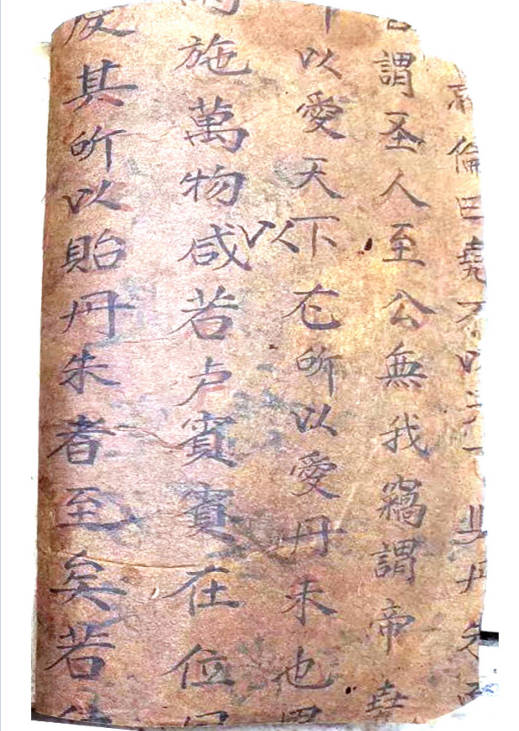 倫曰堯不以天丹朱
謂圣人至公無我竊謂帝堯
以愛天下所以愛丹朱也
以
施萬物咸若卢賔賔在位
其所以貽丹朱者至矣若